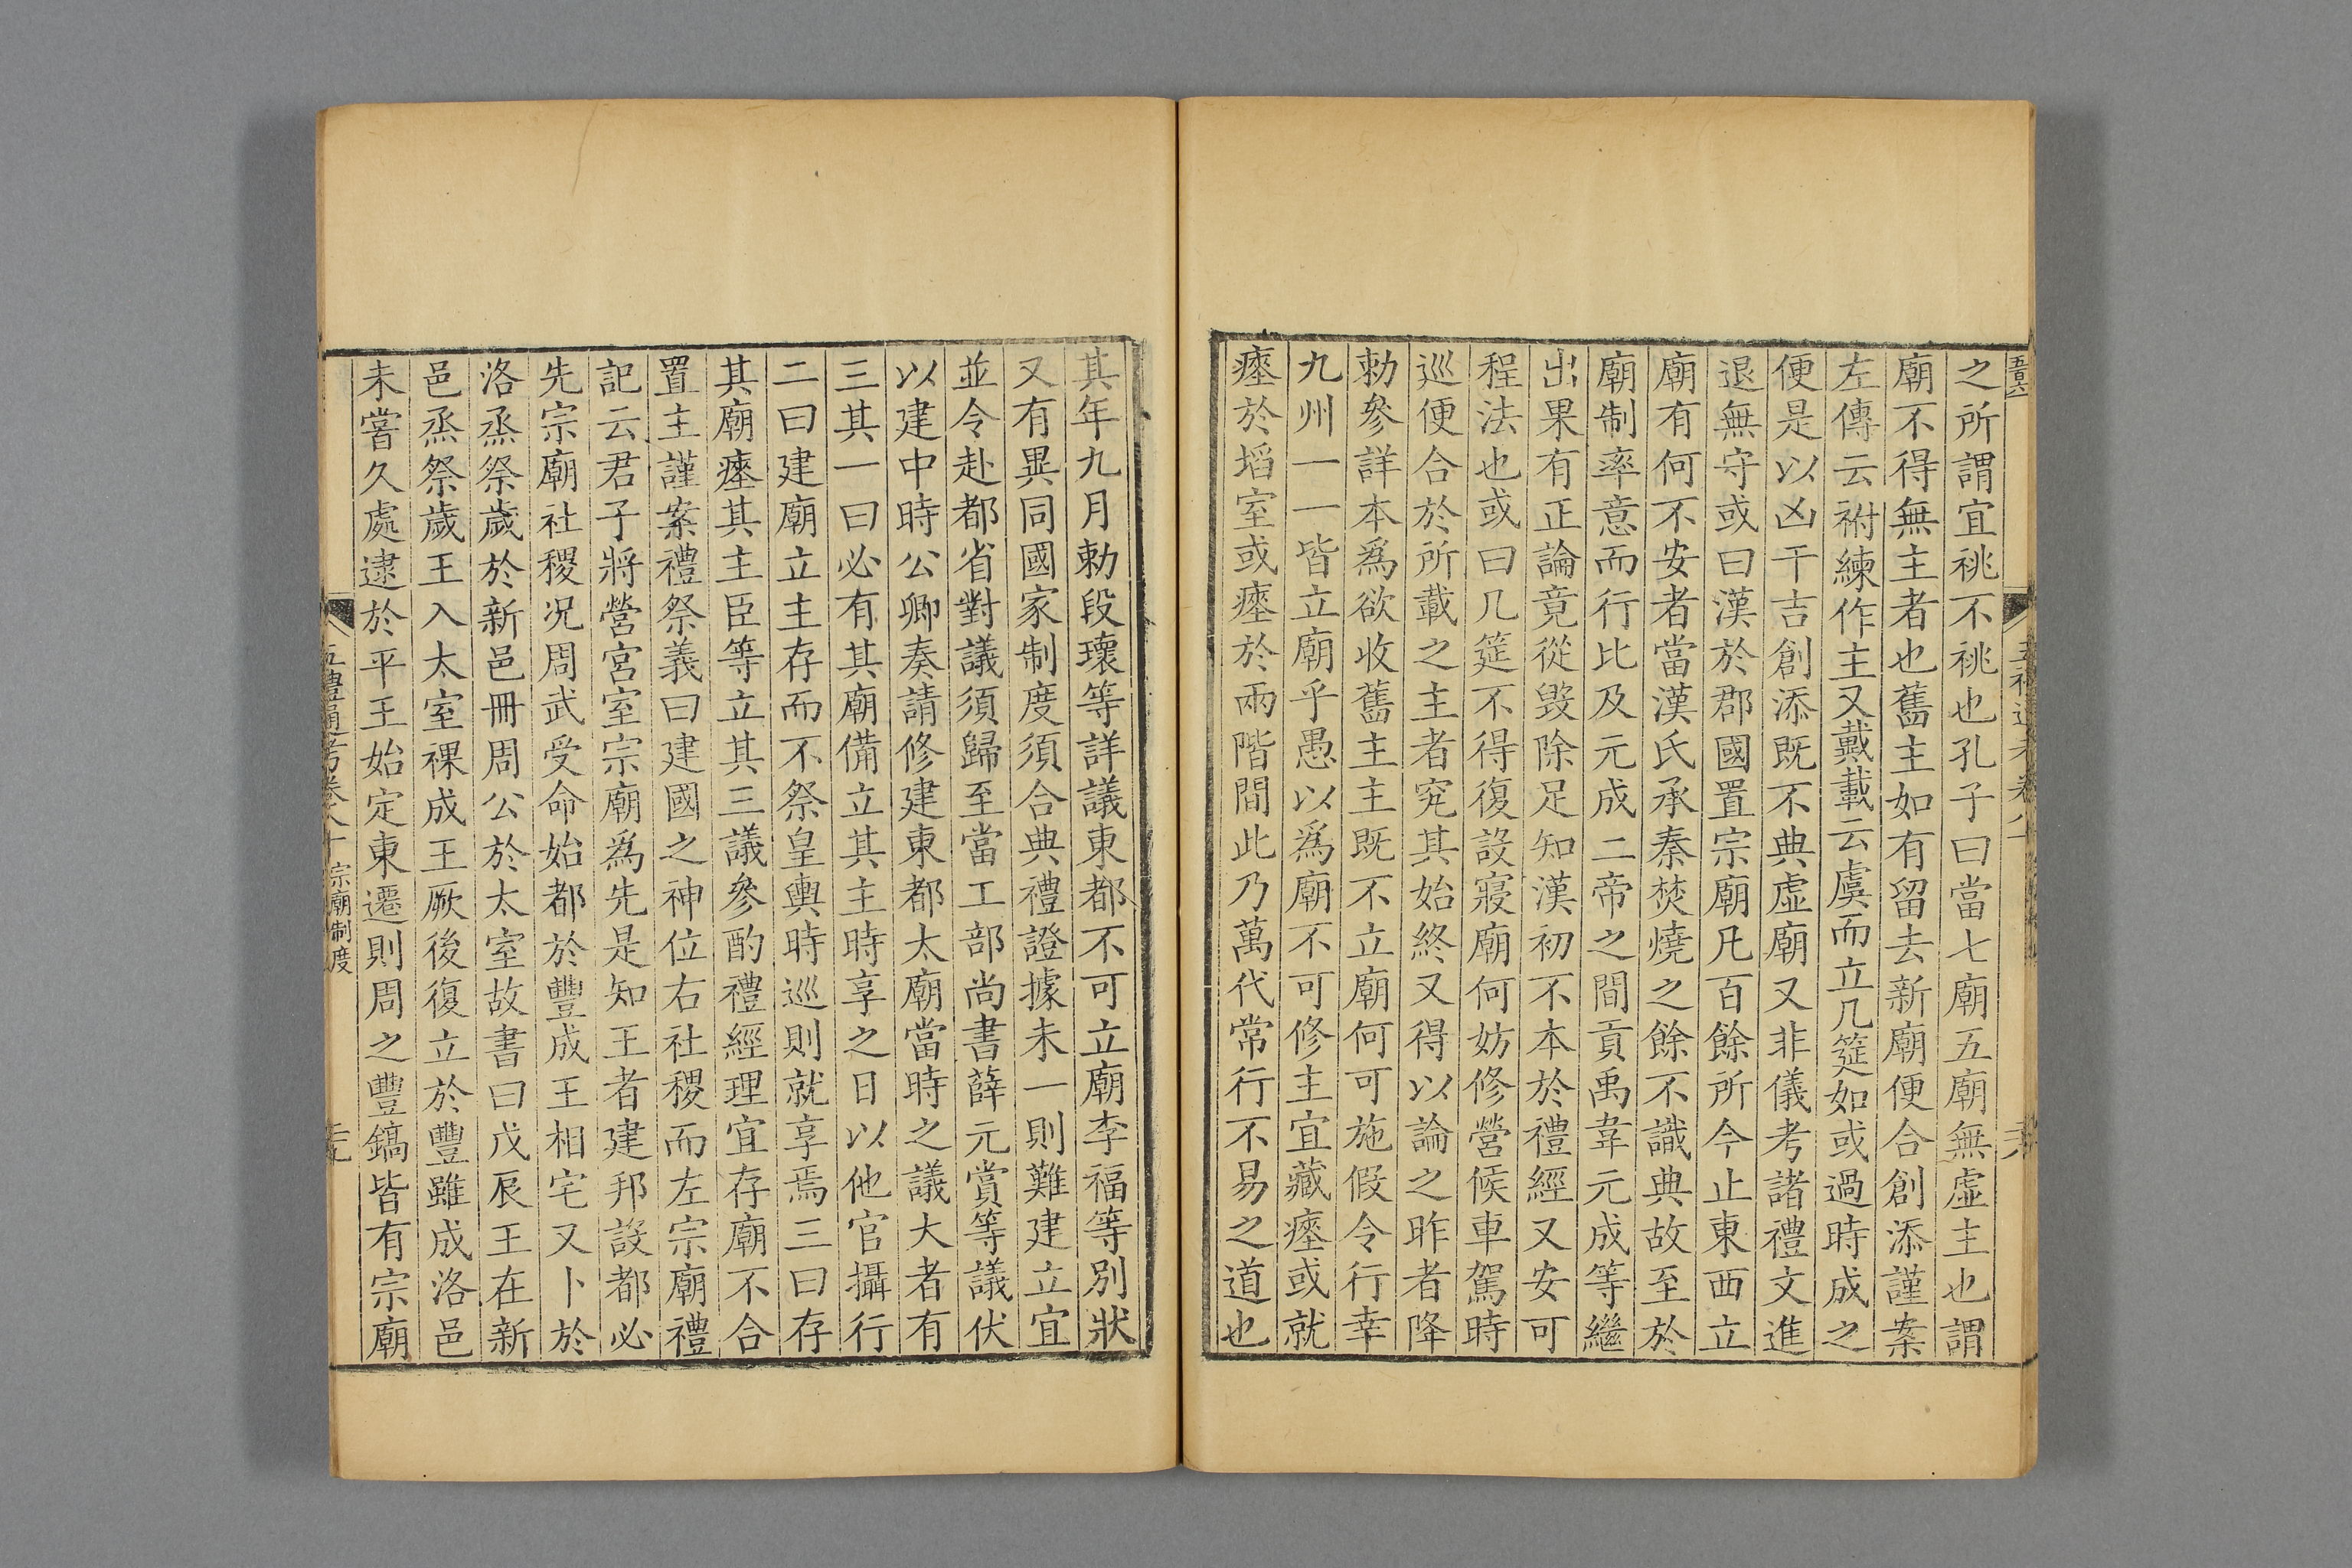 之所謂宜祧不祧也孔子曰當七廟五廟無虛主也謂
廟不得無主者也舊主如有留去新廟便合創添謹案
左傳云祔練作主又戴載云虞而立几筵如或過時成之
便是以凶干吉創添既不典虛廟又非儀考諸禮文進
退無守或曰漢於郡國置宗廟凡百餘所今止東西立
廟有何不安者當漢氏承秦焚燒之餘不識典故至於
廟制率意而行比及元成二帝之間貢禹韋元成等繼
出果有正論竟從毀除足知漢初不本於禮經又安可
程法也或曰几筵不得復設寢廟何妨修營候車駕時
巡便合於所載之主者究其始終又得以論之昨者降
勅參詳本爲欲收舊主主既不立廟何可施假令行幸
九州一一皆立廟乎愚以爲廟不可修主宜藏瘞或就
瘞於埳室或瘞於兩階間此乃萬代常行不易之道也
其年九月勅段瓌等詳議東都不可立廟李福等別狀
又有異同國家制度須合典禮證據未一則難建立宜
並令赴都省對議須歸至當工部尚書薛元賞等議伏
以建中時公卿奏請修建東都太廟當時之議大者有
三其一曰必有其廟備立其主時享之日以他官攝行
二曰建廟立主存而不祭皇輿時巡則就享焉三曰存
其廟瘞其主臣等立其三議參酌禮經理宜存廟不合
置主謹案禮祭義曰建國之神位右社稷而左宗廟禮
記云君子將營宮室宗廟爲先是知王者建邦設都必
先宗廟社稷况周武受命始都於豐成王相宅又卜於
洛烝祭歲於新邑冊周公於太室故書曰戊辰王在新
邑烝祭歲王入太室祼成王厥後復立於豐雖成洛邑
未嘗久處逮於平王始定東遷則周之豐鎬皆有宗廟
五禮通考卷八十 宗廟制度